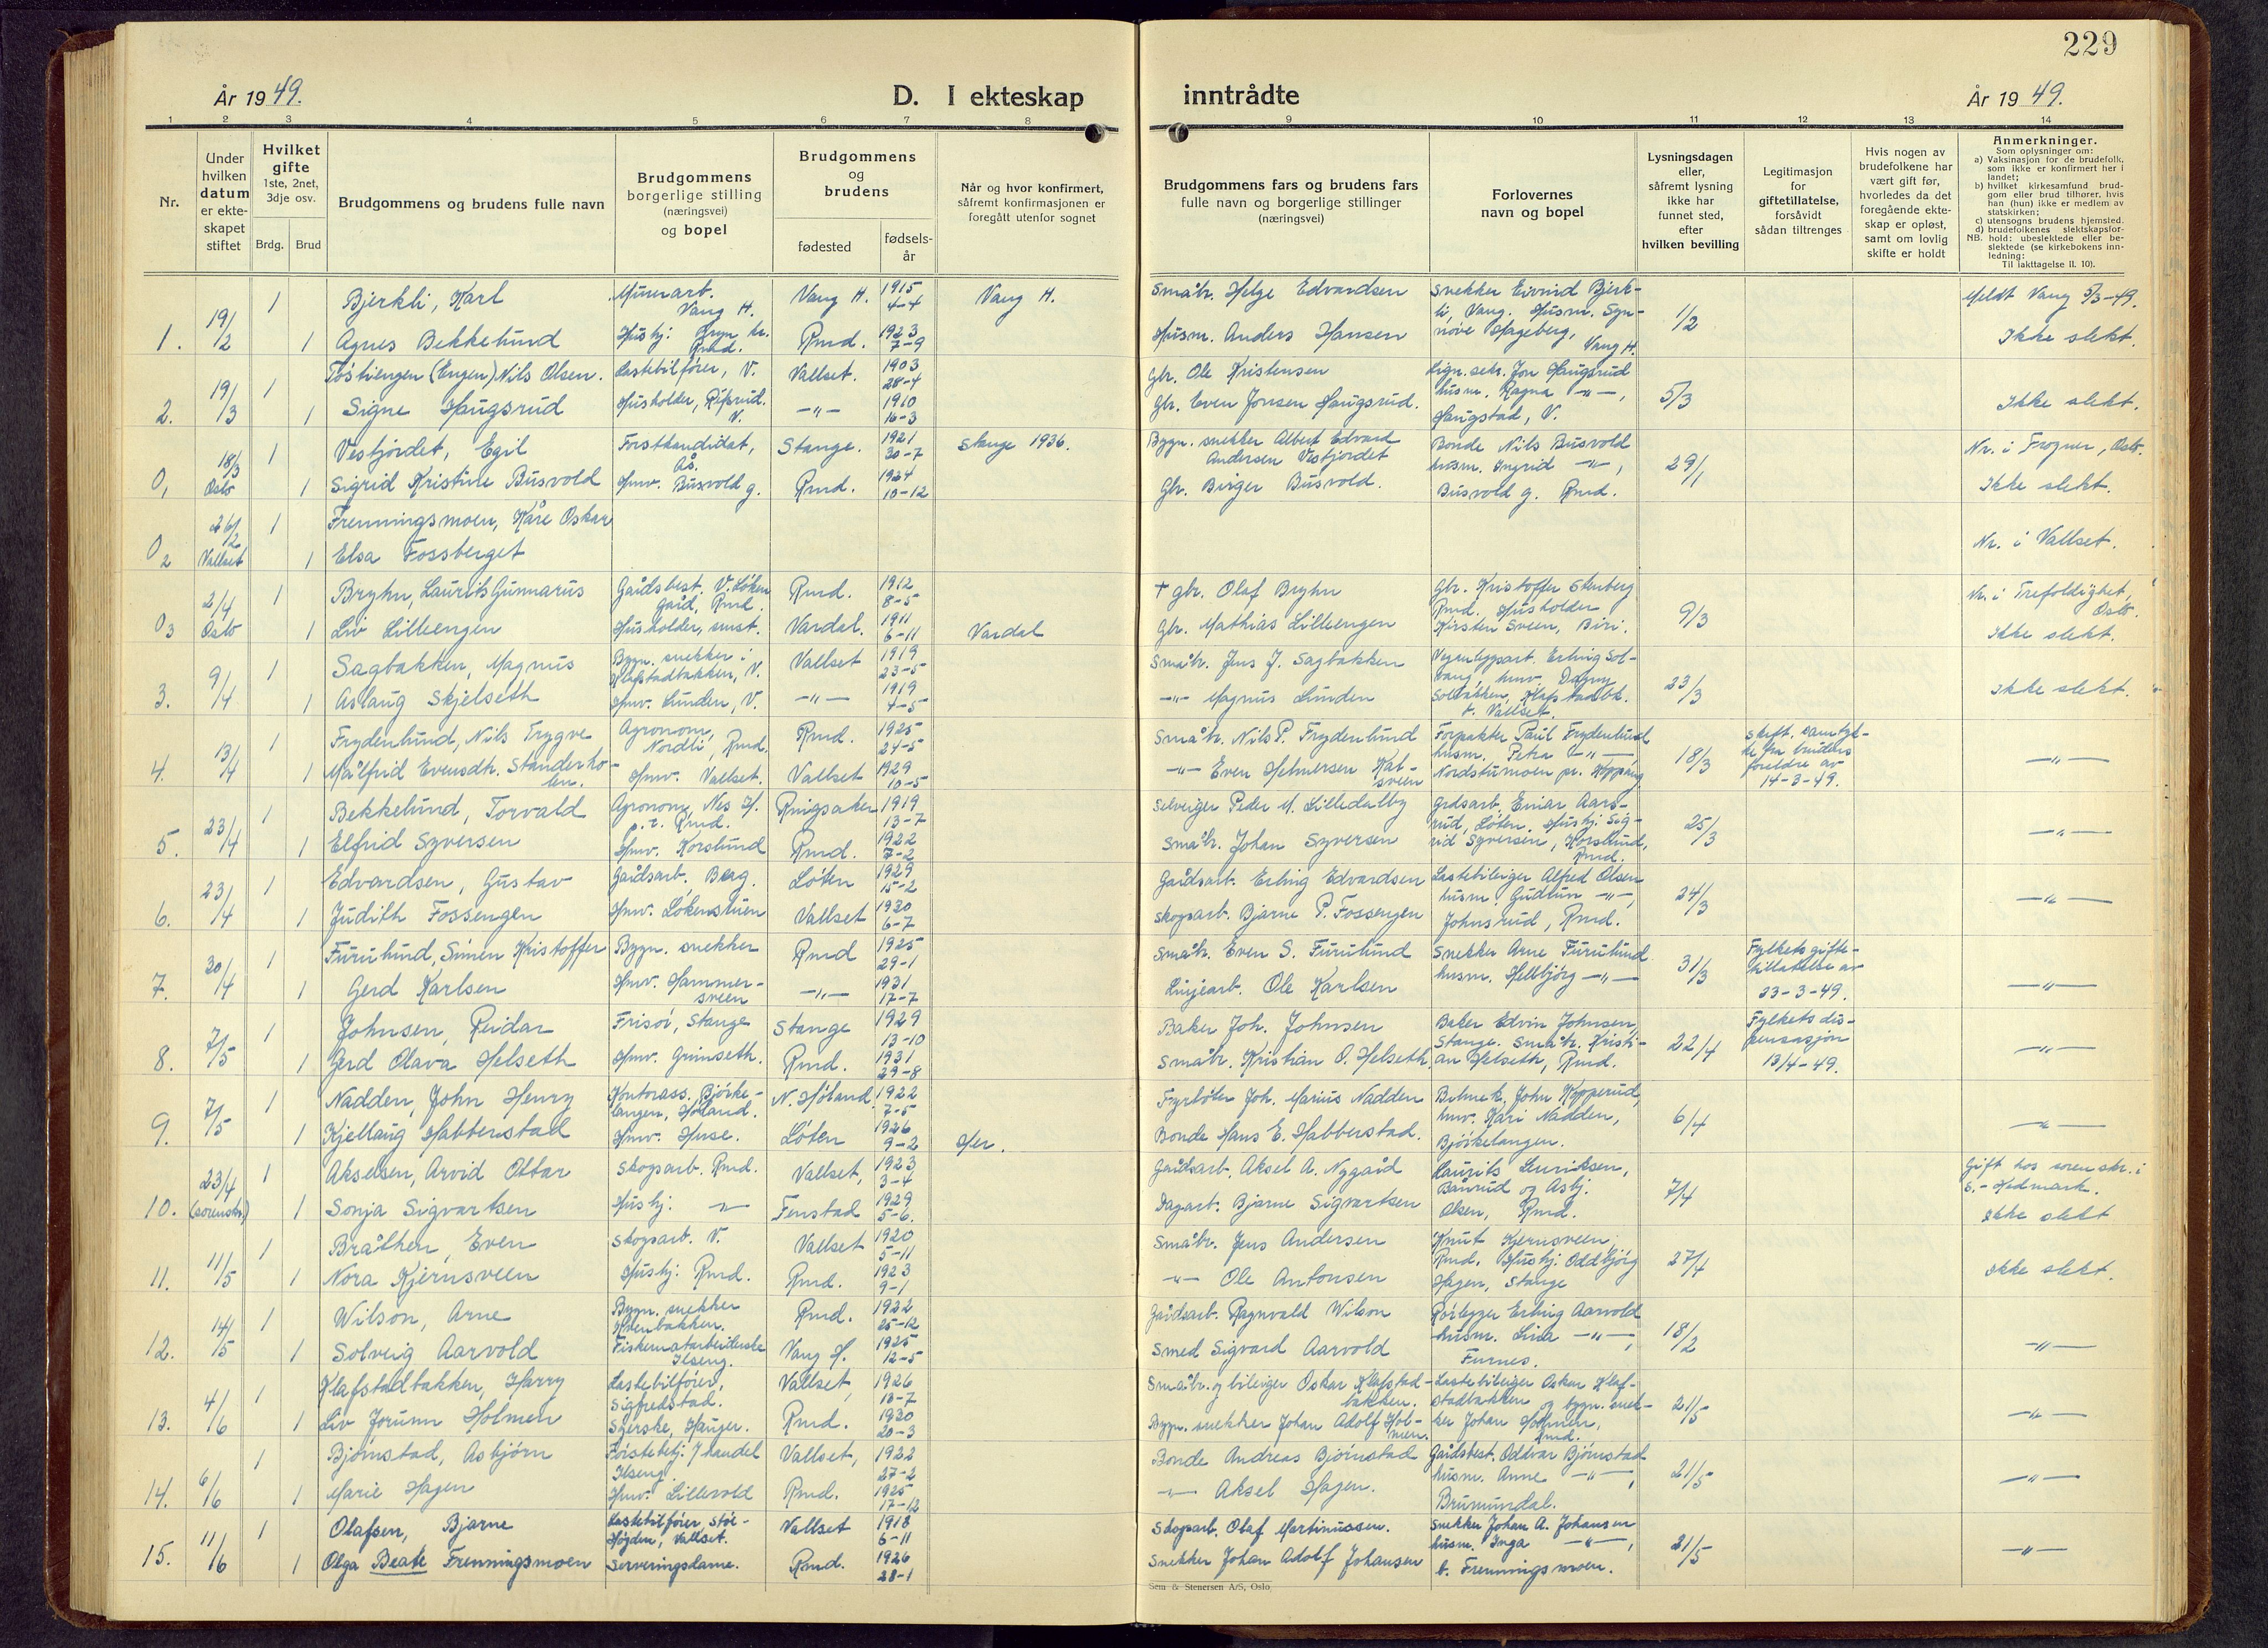 229
År 1949.
D. I ekteskap inntrådte
År 1949.
1 2 3 4 5 6 7 8 9 10 11 12 13 14
Nr.
Under hvilken datum er ekteskapet stiftet
Hvilket gifte 1ste, 2net, 3dje osv.
Brdg. Brud
Brudgommens og brudens fulle navn
Brudgommens borgerlige stilling (næringsvei) og bopel
Brudgommens og brudens
fødested
fødselsår
Når og hvor konfirmert, såfremt konfirmasjonen er foregått utenfor sognet
Brudgommens fars og brudens fars fulle navn og borgerlige stillinger (næringsvei)
Forlovernes navn og bopel
Lysningsdagen eller, såfremt lysning ikke har funnet sted, efter hvilken bevilling
Legitimasjon for giftetillatelse, forsåvidt sådan tiltrenges
Hvis nogen av brudefolkene har vært gift før, hvorledes da det foregående ekteskap er opløst, samt om lovlig skifte er holdt
Anmerkninger.
Som oplysninger om:
a) Vaksinasjon for de brudefolk, som ikke er konfirmert her i landet;
b) hvilket kirkesamfund brudgom eller brud tilhører, hvis han (hun) ikke er medlem av statskirken;
c) utensogns brudens hjemsted.
d) brudefolkenes slektskapsforhold: ubeslektede eller beslektede (se kirkebokens innledning:
NB. Til iakttagelse II. 10).
1. 19/2 1 Bjerkli, Karl Murerarb. Vang H. Vang H. 1915 4-4 Vang H. Småbr. Helge Edvardsen Snekker Eivind Bjerkli, Vang. Husm. Synnøve Hageberg, Vang H. 1/2 Meldt Vang 5/3-49.
1 Agnes Bekkelund Hushj. Rmd. 1923 7-9 Husm. Anders Hansen Ikke slekt.
2. 19/3 1 Tøstiengen (Engen) Nils Olsen. Lastebilfører, V. Vallset. 1903 28-4 Gbr. Ole Kristensen Jon Haugsrud husm. Ragna -"-, Haugstad, V. 5/3
1 Signe Haugsrud Husholder, V. -"- 1910 16-3 Gbr. Even Jonsen Haugsrud. Ikke slekt.
0, 18/3 Oslo 1 Vesfjordet, Egil Forstkandidat, Ås. Stange. 1921 30-7 Stange 1936. Bygn. snekker Albert Edvard Andersen Vesfjordet Bonde Nils Busvold husm. Ingrid -"-, Busvold g. Rmd. 29/1 Nr. i Frogner, Oslo.
1 Sigrid Kristine Busvold Hmv. Busvold g. Rmd. 1924 10-12 Gbr. Birger Busvold. Ikke slekt.
02 26/2 Vallset 1 Frenningsmoen, Kåre Oskar
1 Elsa Fossberget Nr. i Vallset.
03 2/4 Oslo 1 Bryhn, Laurits Gunnarus Gårdsbest. V. Løken gård, Rmd. Rmd. 1912 8-5 + gbr. Olaf Bryhn Gbr. Kristoffer Stenberg Rmd. Husholder Kirsten Sveen, Biri. 9/3 Nr. i Trefoldighet, Oslo.
1 Liv Lilleengen Husholder, smst. Vardal. 1911 6-11 Vardal Gbr. Mathias Lilleengen Ikke slekt.
3. 9/4 1 Sagbakken, Magnus Bygn. snekker i Klafstadbakken, V. Vallset 1919 23-5 Småbr. Jens J. Sagbakken Erling Solbakken, Klafstadbk. p. Vallset. 23/3
1 Aslaug Skjelseth Hmv. Lunden, V. -"- 1919 4-5 -"- Magnus Lunden Ikke slekt.
4. 13/4 1 Frydenlund, Nils Trygve Agronom, Nordli, Rmd. Rmd. 1925 24-5 Småbr. Nils P. Frydenlund Forpakter Paul Frydenlund husm. Petra -"-, Nordstumoen pr. Koppang 18/3 Skift. samtykke fra brudens foreldre av 14-3-49.
1 Målfrid Evensdtr. Standerholen. Hmv. Vallset. Vallset 1929 10-5 -"- Even Helmersen Kalsveen -"-
5. 23/4 1 Bekkelund, Torvald Agronom, Nes H. p.t. Rmd. Ringsaker 1919 13-7 Selveiger Peder M. Lilledalby Grdsarb. Einar Aarsrud, Løten. Hushj. Sigrid Syversen, Korslund, Rmd. 25/3
1 Elfrid Syversen Hmv. Korslund Rmd. 1922 7-2 Småbr. Johan Syversen -"-
6. 23/4 1 Edvardsen, Gustav Gårdsarb. Berg. Løten 1929 15-2 Gårdsarb. Erling Edvardsen Lastebileier Alfred Olsen husm. Gudrun -"-, Johnsrud, Rmd. 24/3
1 Judith Fossengen Hmv. Lökenstuen Vallset 1930 6-7 Skogsarb. Bjarne P. Fossengen -"-
7. 30/4 1 Furulund, Simen Kristoffer Bygn. snekker Rmd 1925 29-1 Småbr. Even S. Furulund Snekker Arne Furulund husm. Hellbjørg -"- 31/3 Fylkets giftetillatelse av 23-3-49.
1 Gerd Karlsen Hmv. Hammersveen -"- 1931 17-7 Linjearb. Ole Karlsen -"-
8. 7/5 1 Johnsen, Reidar Frisør, Stange Stange 1929 13-10 Baker Joh. Johnsen Baker Edvin Johnsen, Stange. Småbr. Kristian Helseth, Rmd. 22/4 Fylkets dispensasjon 13/4-49.
1 Gerd Olava Helseth Hmv. Grinseth. Rmd. 1931 29-8 Småbr. Kristian O. Helseth -"-
9. 7/5 1 Nadden, John Henry Kontorass. Bjørkelangen, Høland. N. Høland. 1922 7-5 Fyrbøter Joh. Marius Nadden John Kopperud, hmv. Kari Nadden, Bjørkelangen. 6/4
1 Kjellaug Habberstad Hmv. Huse. Løten 1926 9-2 Her. Bonde Hans E. Habberstad. -"-
10. 23/4 (sorenskr.) 1 Akselsen, Arvid Ottar Skogsarb. Rmd. Vallset, 1923 3-4 Gårdsarb. Aksel A. Nygård Laurits Lauriksen, Baurud og Asbj. Olsen, Rmd. 7/4 Gift hos sorenskr. i S.-Hedmark.
1 Sonja Sigvartsen Hushj. -"- Fenstad 1929 5-6. Dagarb. Bjarne Sigvartsen Ikke slekt
11. 11/5 1 Bråthen, Even Skogsarb. V. Vallset 1920 5-11 Småbr. Jens Andersen Knut Kjernsveen, Rmd. Hushj. Oddbjørg Hagen, Stange 27/4
1 Nora Kjernsveen Hushj. Rmd. Rmd. 1923 9-1 -"- Ole Antonsen Ikke slekt.
12. 14/5 1 Wilson, Arne Bygn. snekker Kvenbakken. Rmd. 1922 25-12 Gårdsarb. Ragnvald Wilson Rørlegger Erling Aarvold husm. Lisa -"-, Furnes. 18/2
1 Solveig Aarvold Fiskematarbeiderske Ilseng. Vang H. 1925 12-5 Smed Sigvard Aarvold -"-
13. 4/6 1 Klafstadbakken, Harry Lastebilfører, Sigfredstad. Vallset, 1926 13-7 Småbr. og bileier Oskar Klafstadbakken. Lastebileier Oskar Klafstadbakken og bygn. snekker Johan Holmen, Rmd. 21/5
1 Liv Jorunn Holmen Syerske, Hauger. Rmd. 1930 20-3 Bygn. snekker Johan Adolf Holmen. -"-
14. 6/6 1 Bjørnstad, Asbjørn Førstebetj. i handel Ilseng. Vallset, 1922 27-2 Bonde Andreas Bjørnstad Gårdsbest. Oddvar Bjørnstad husm. Anne -"-, Brumunddal. 21/5
1 Marie Hagen Hmv. Lillevold Rmd. 1925 17-12 -"- Aksel Hagen. -"-
15. 11/6 1 Olafsen, Bjarne Lastebilfører, Vallset. Vallset 1918 6-11 Skogsarb. Olaf Martinussen. Snekker Johan A. Johansen husm. Inga -"-, b. Frenningsmoen. 21/5
1 Olga Beate Frenningsmoen Serveringsdame. Rmd. 1926 28-1 Snekker Johan Adolf Johansen -"-
Sem & Stenersen A/S, Oslo